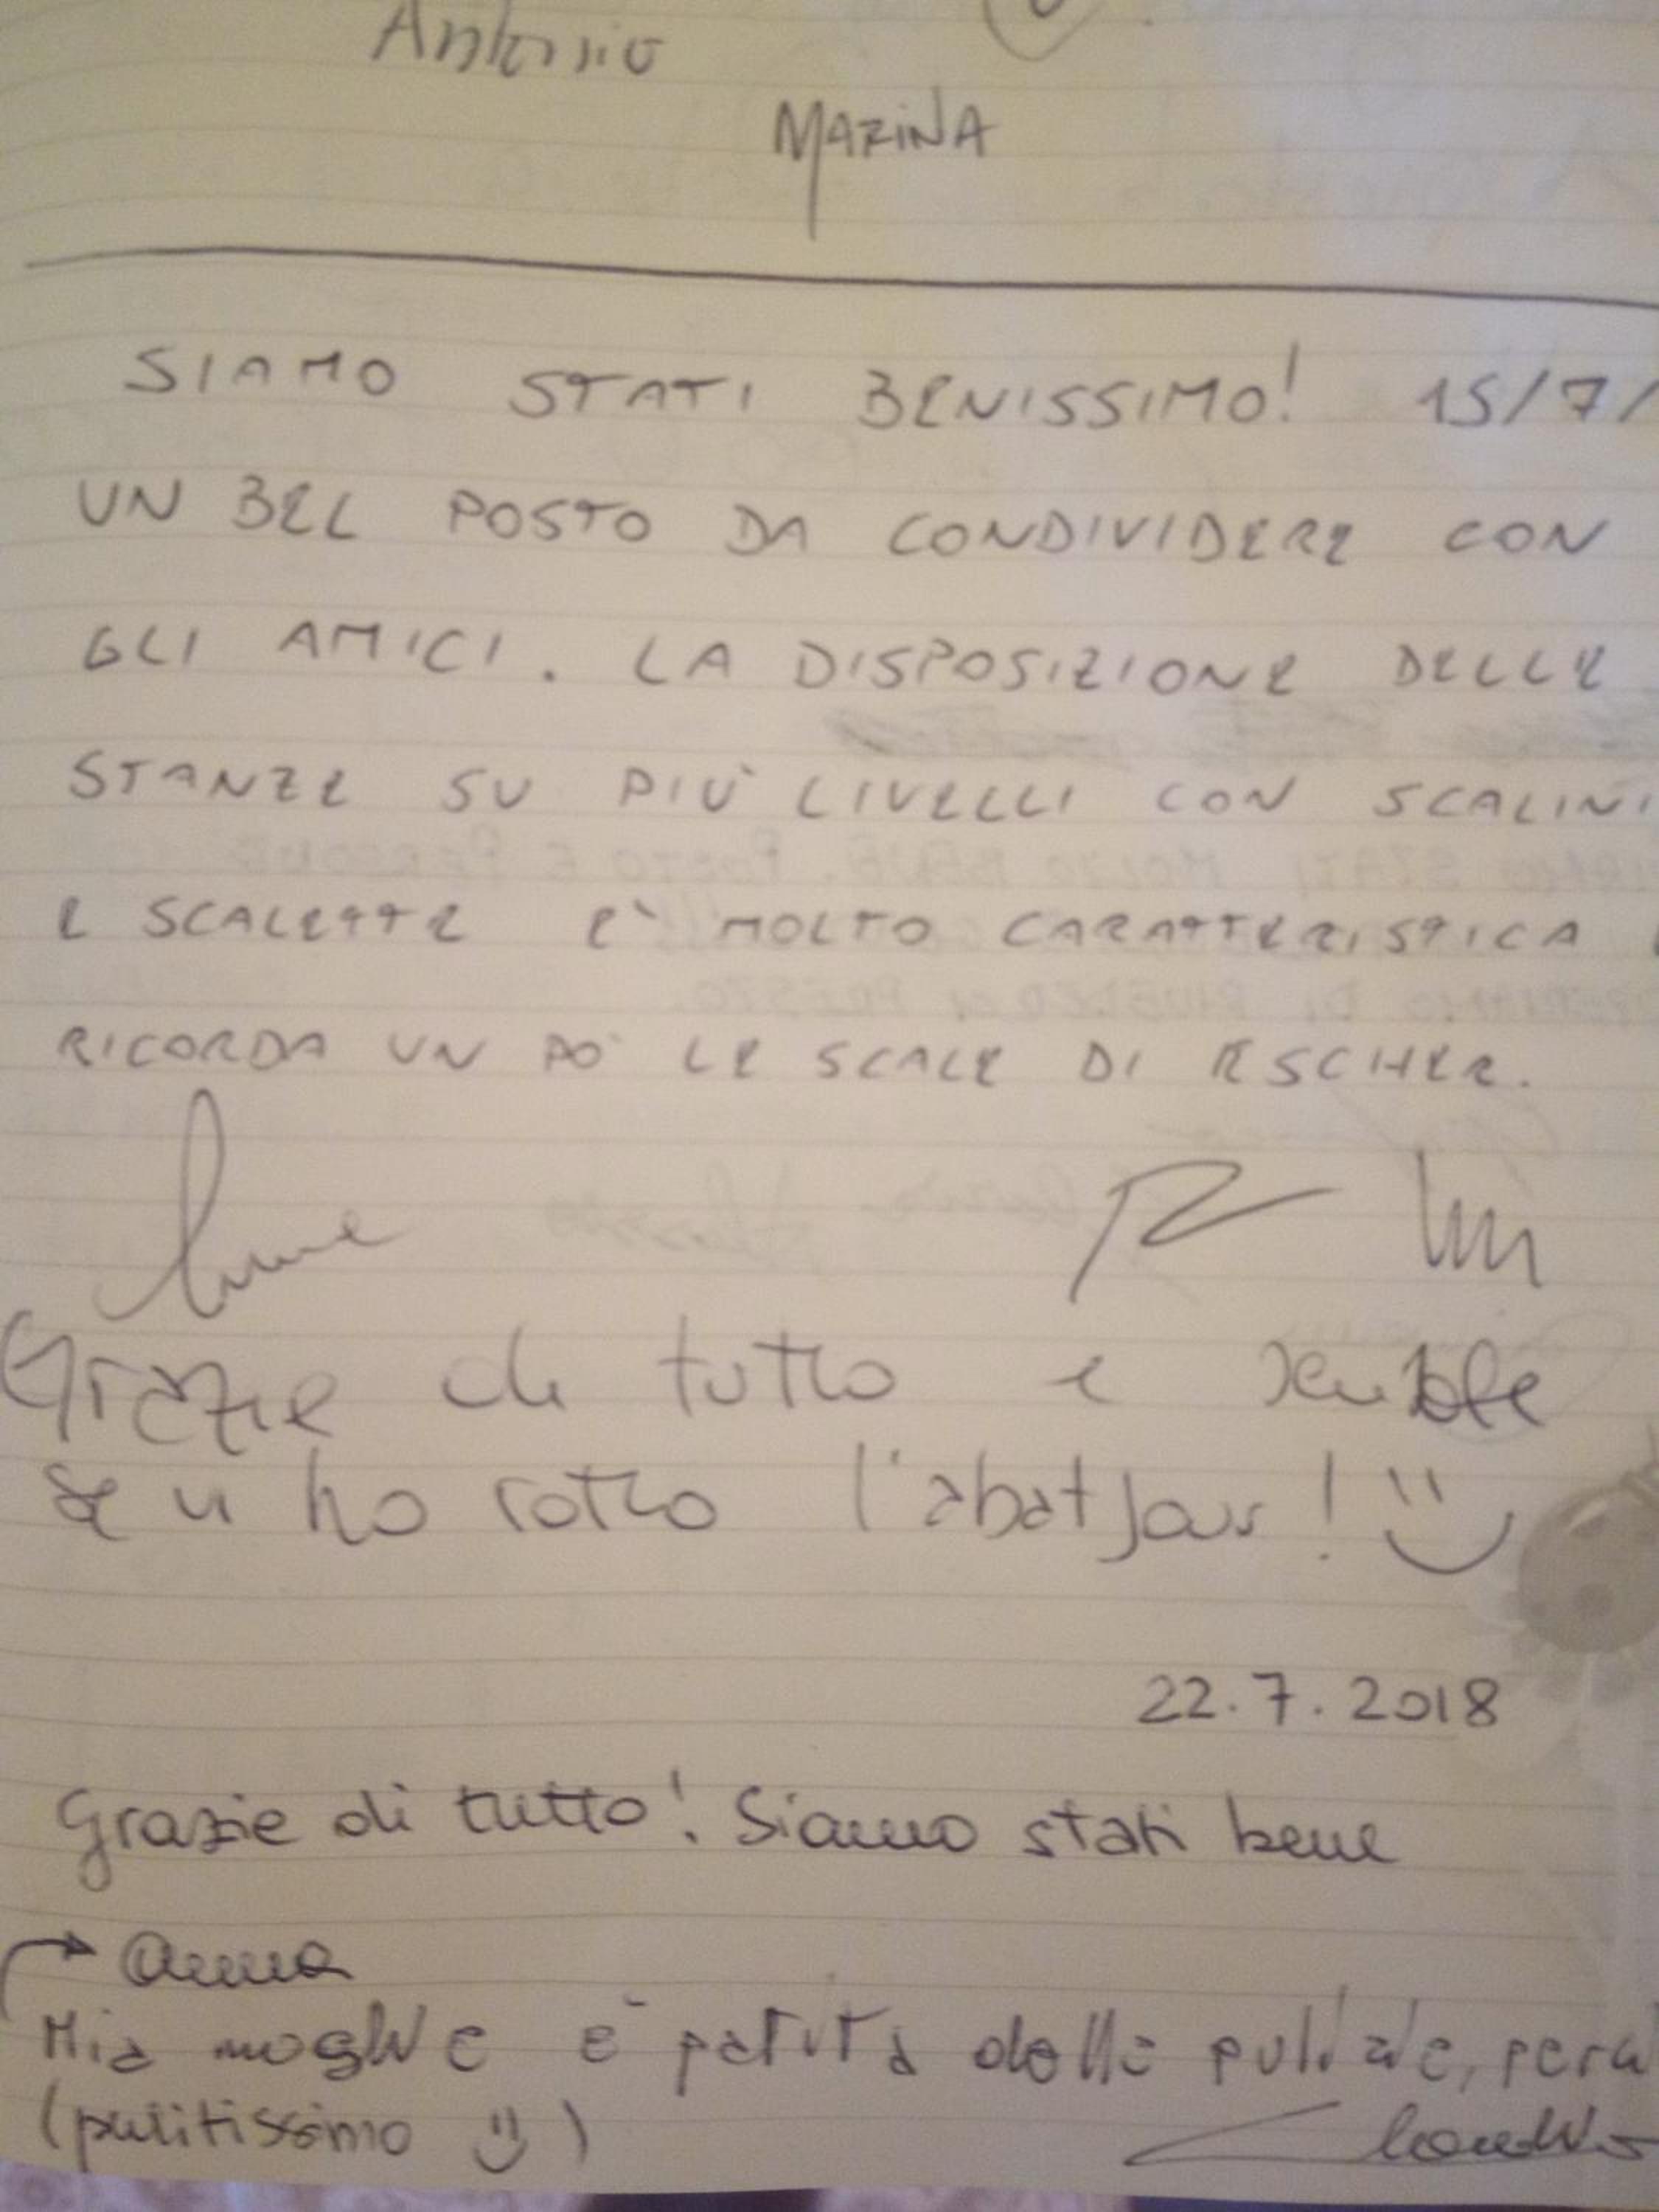 Antonio
MARINA
SIAMO STATI BENISSIMO! 15/7/
UN BEL POSTO DA CONDIVIDERE CON
GLI AMICI. LA DISPOSIZIONE DELLE
STANZE SU PIÙ LIVELLI CON SCALINI
E SCALETTE E' MOLTO CARATTERISTICA
RICORDA UN PO' LE SCALE DI ESCHER.
Grazie di tutto e scusate
se vi ho rotto l'abat jour! :)
22.7.2018
Grazie di tutto! Siamo stati bene
→ Anna
Mia moglie è patita delle pulizie, però
(pulitissimo :))